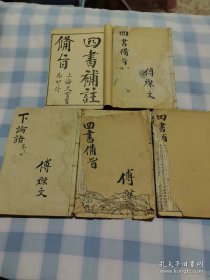 四書補註
備旨
上海久
四書備旨
傅燦文
下論語
傅燦文
四書備旨
傅
燦文
四書